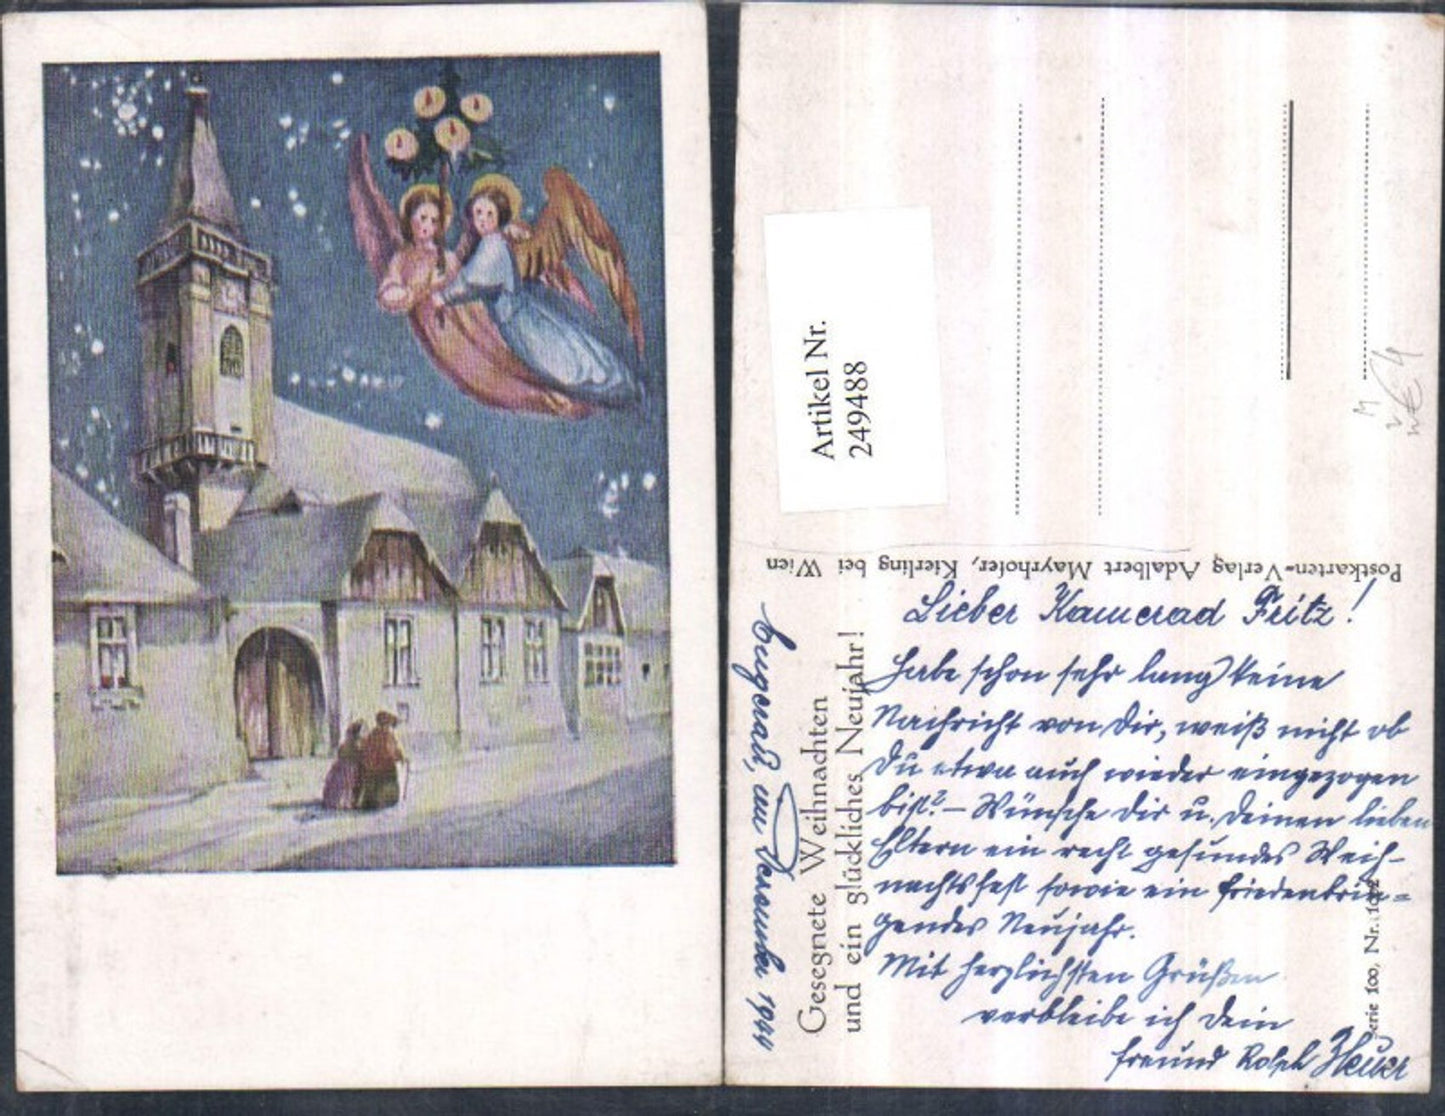 Artikel Nr.
249488
Postkarten-Verlag Adalbert Mayrhofer, Kierling bei Wien
Gesegnete Weihnachten
und ein glückliches Neujahr!
Serie 100, Nr. 102
Lieber Kamerad Fritz!
Habe schon sehr lang keine
Nachricht von Dir, weiß nicht ob
Du etwa auch wieder eingezogen
bist? – Wünsche Dir u. Deinen lieben
Eltern ein recht gesundes Weih-
nachtsfest sowie ein friedenbrin=
gendes Neujahr.
Mit herzlichsten Grüßen
verbleibe ich Dein
Freund Rolph
im Dezember 1944